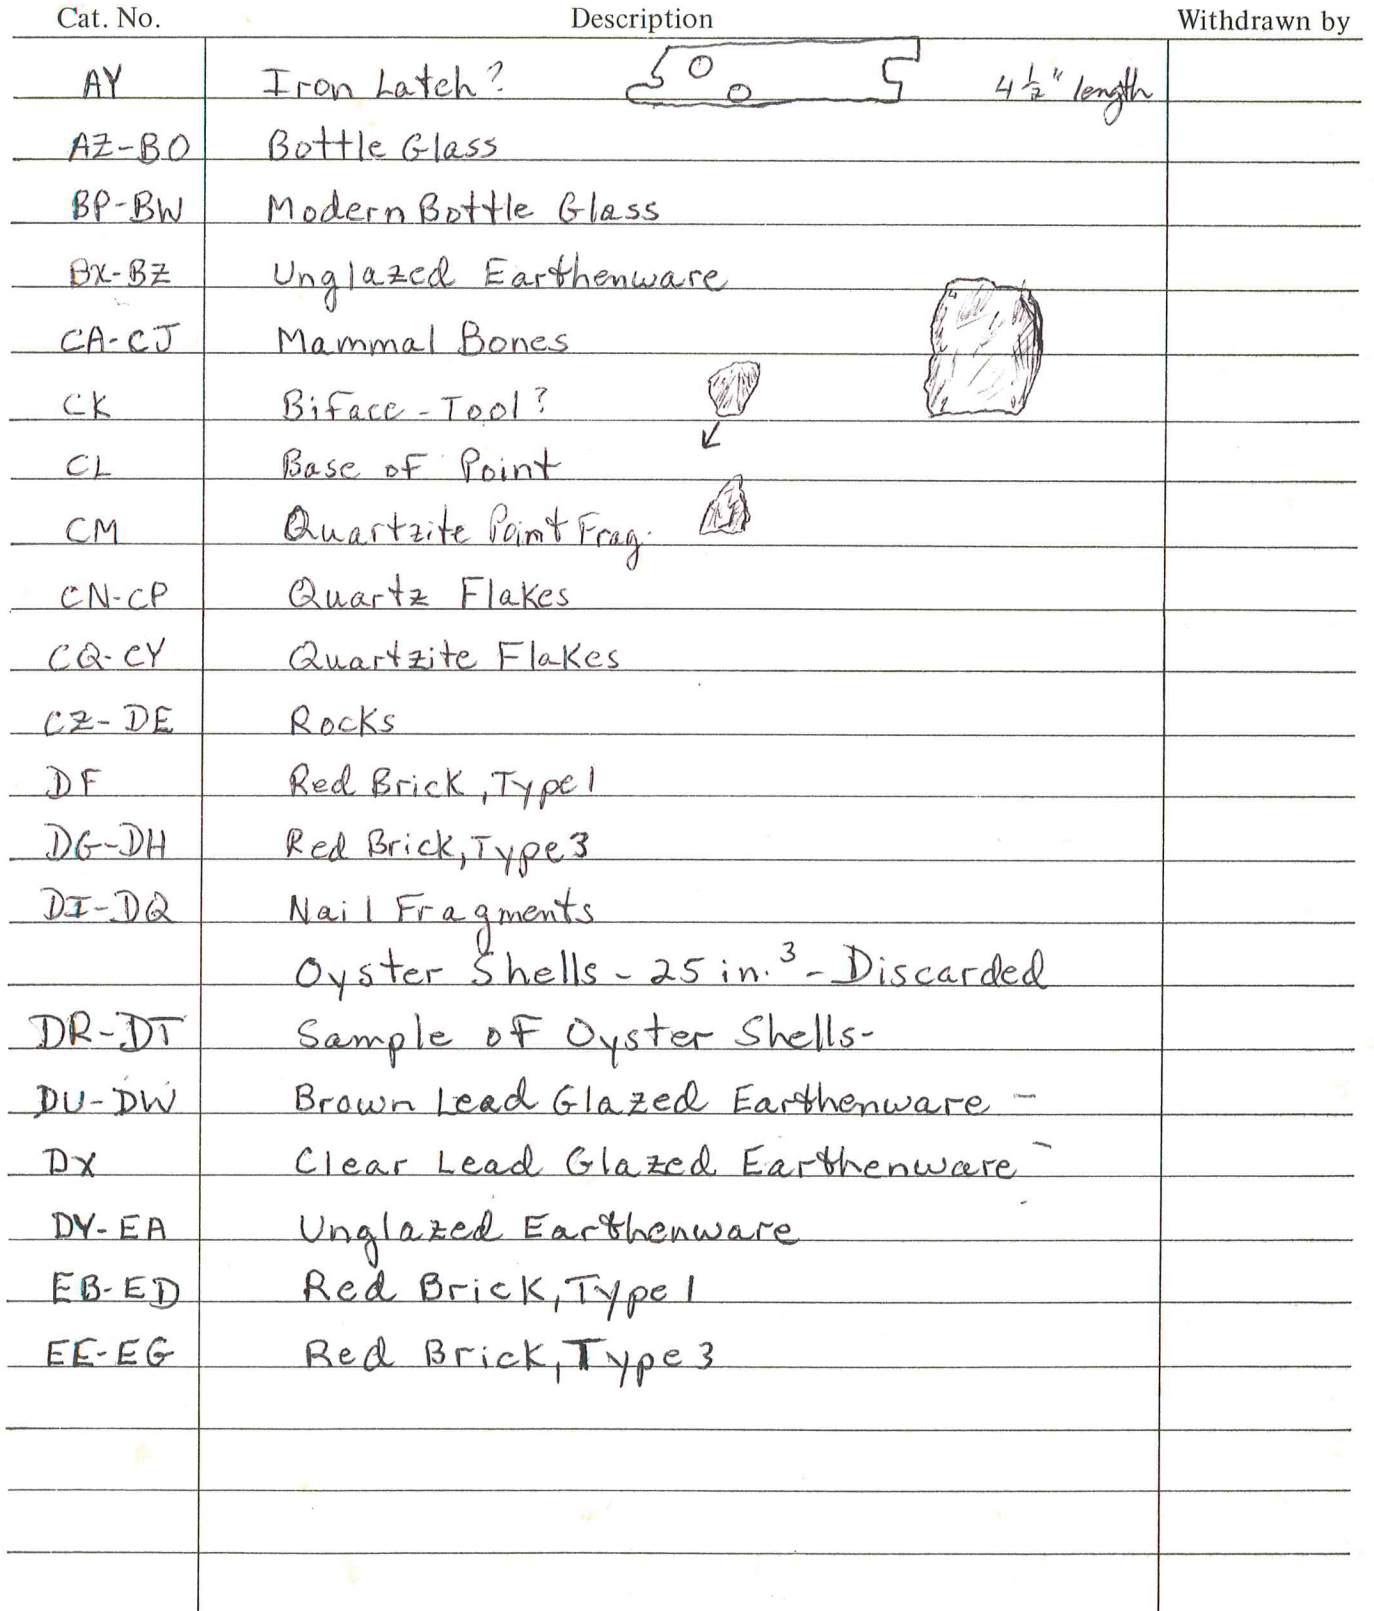 Cat. No. Description Withdrawn by
AY Iron Latch? 4 1/2" length
AZ-BO Bottle Glass
BP-BW Modern Bottle Glass
BX-BZ Unglazed Earthenware
CA-CJ Mammal Bones
CK Biface - Tool?
CL Base of Point
CM Quartzite Point Frag.
CN-CP Quartz Flakes
CQ-CY Quartzite Flakes
CZ-DE Rocks
DF Red Brick, Type 1
DG-DH Red Brick, Type 3
DI-DQ Nail Fragments
Oyster Shells - 25 in.³ - Discarded
DR-DT Sample of Oyster Shells-
DU-DW Brown Lead Glazed Earthenware -
DX Clear Lead Glazed Earthenware -
DY-EA Unglazed Earthenware
EB-ED Red Brick, Type 1
EE-EG Red Brick, Type 3